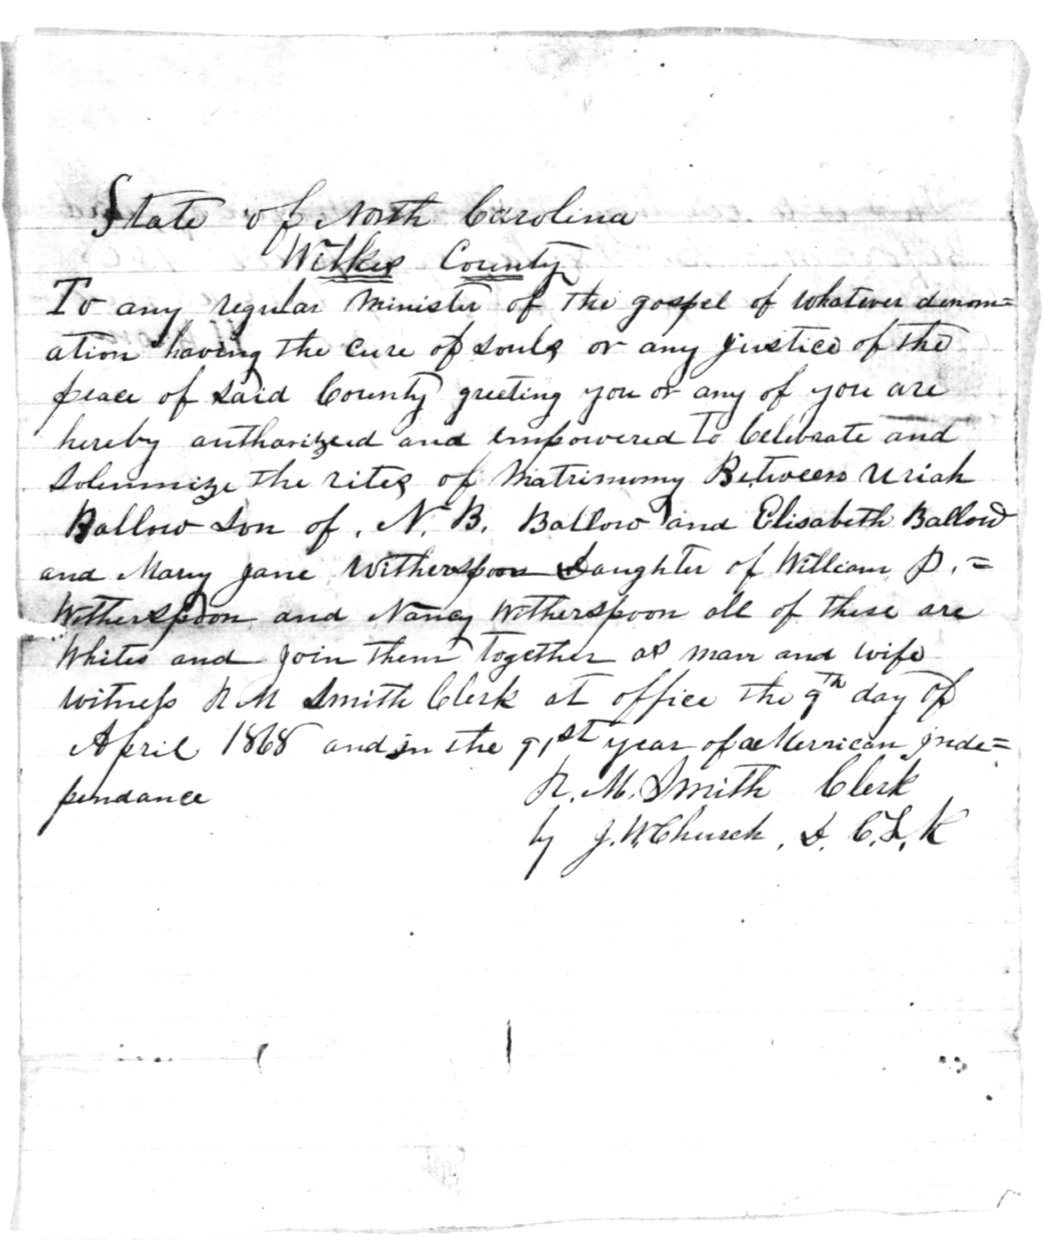 State of North Carolina
Wilkes County
To any regular minister of the gospel of whatever denom=
ation having the cure of souls or any justice of the
peace of said County greeting you or any of you are
hereby autharized and empowered To Celebrate and
Solemnize the rites of Matrimony Between Uriah
Ballow Son of. N. B. Ballow and Elisabeth Ballow
and Mary Jane Witherspoon Daughter of William P. =
Witherspoon and Nancy Witherspoon all of these are
Whites and Join them Together as man and wife
witness R M Smith Clerk at office the 9th day of
April 1868 and in the 91st year of aMerrican Inde=
pendance
R. M. Smith Clerk
by J. W. Church, D. C. L. K